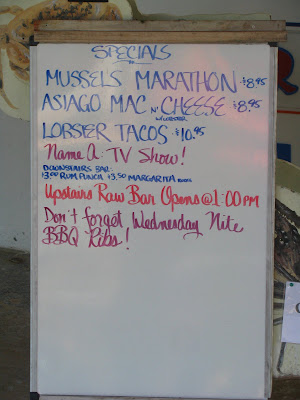 SPECIALS
MUSSELS MARATHON $8.95
ASIAGO MAC N' CHEESE $8.95
W/LOBSTER
LOBSTER TACOS $10.95
Name A TV Show!
DOWNSTAIRS BAR:
$3.00 RUM PUNCH $3.50 MARGARITA
Upstairs Raw Bar Opens @ 1:00 PM
Don't forget Wednesday Nite
BBQ Ribs!